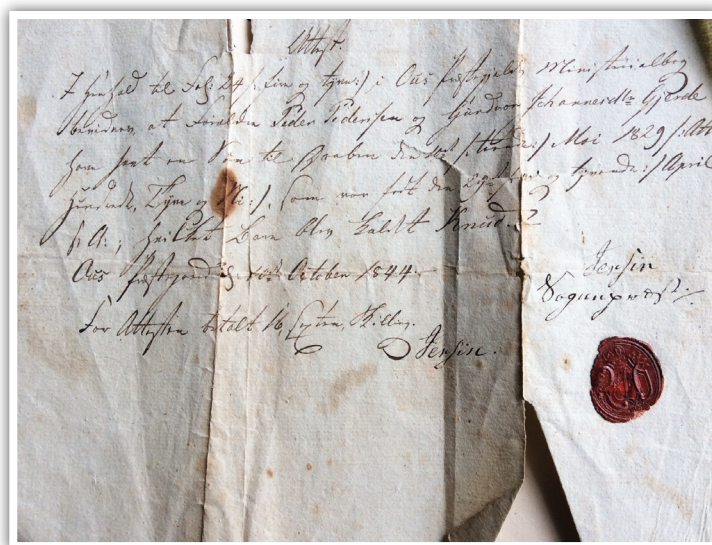 Attest.
I henhold til Fol: 24 (: fire og tyve :) i Ous Præstegjelds Ministerialbog
bevidnes, at Forældre Peder Pedersen og Johannesdtr Gjerde
have havt en Søn til Daaben den Mai 1829 (: Atten
hundrede, Tyve og Ni :), som var født den og tyvende :) April
s. A.; hvilket Barn blev kaldet Knud.
Ous Præstegaard, October 1844.
Jensen
Sognepræst.
For Attesten betalt 16 Sexten Skilling.
Jensen.